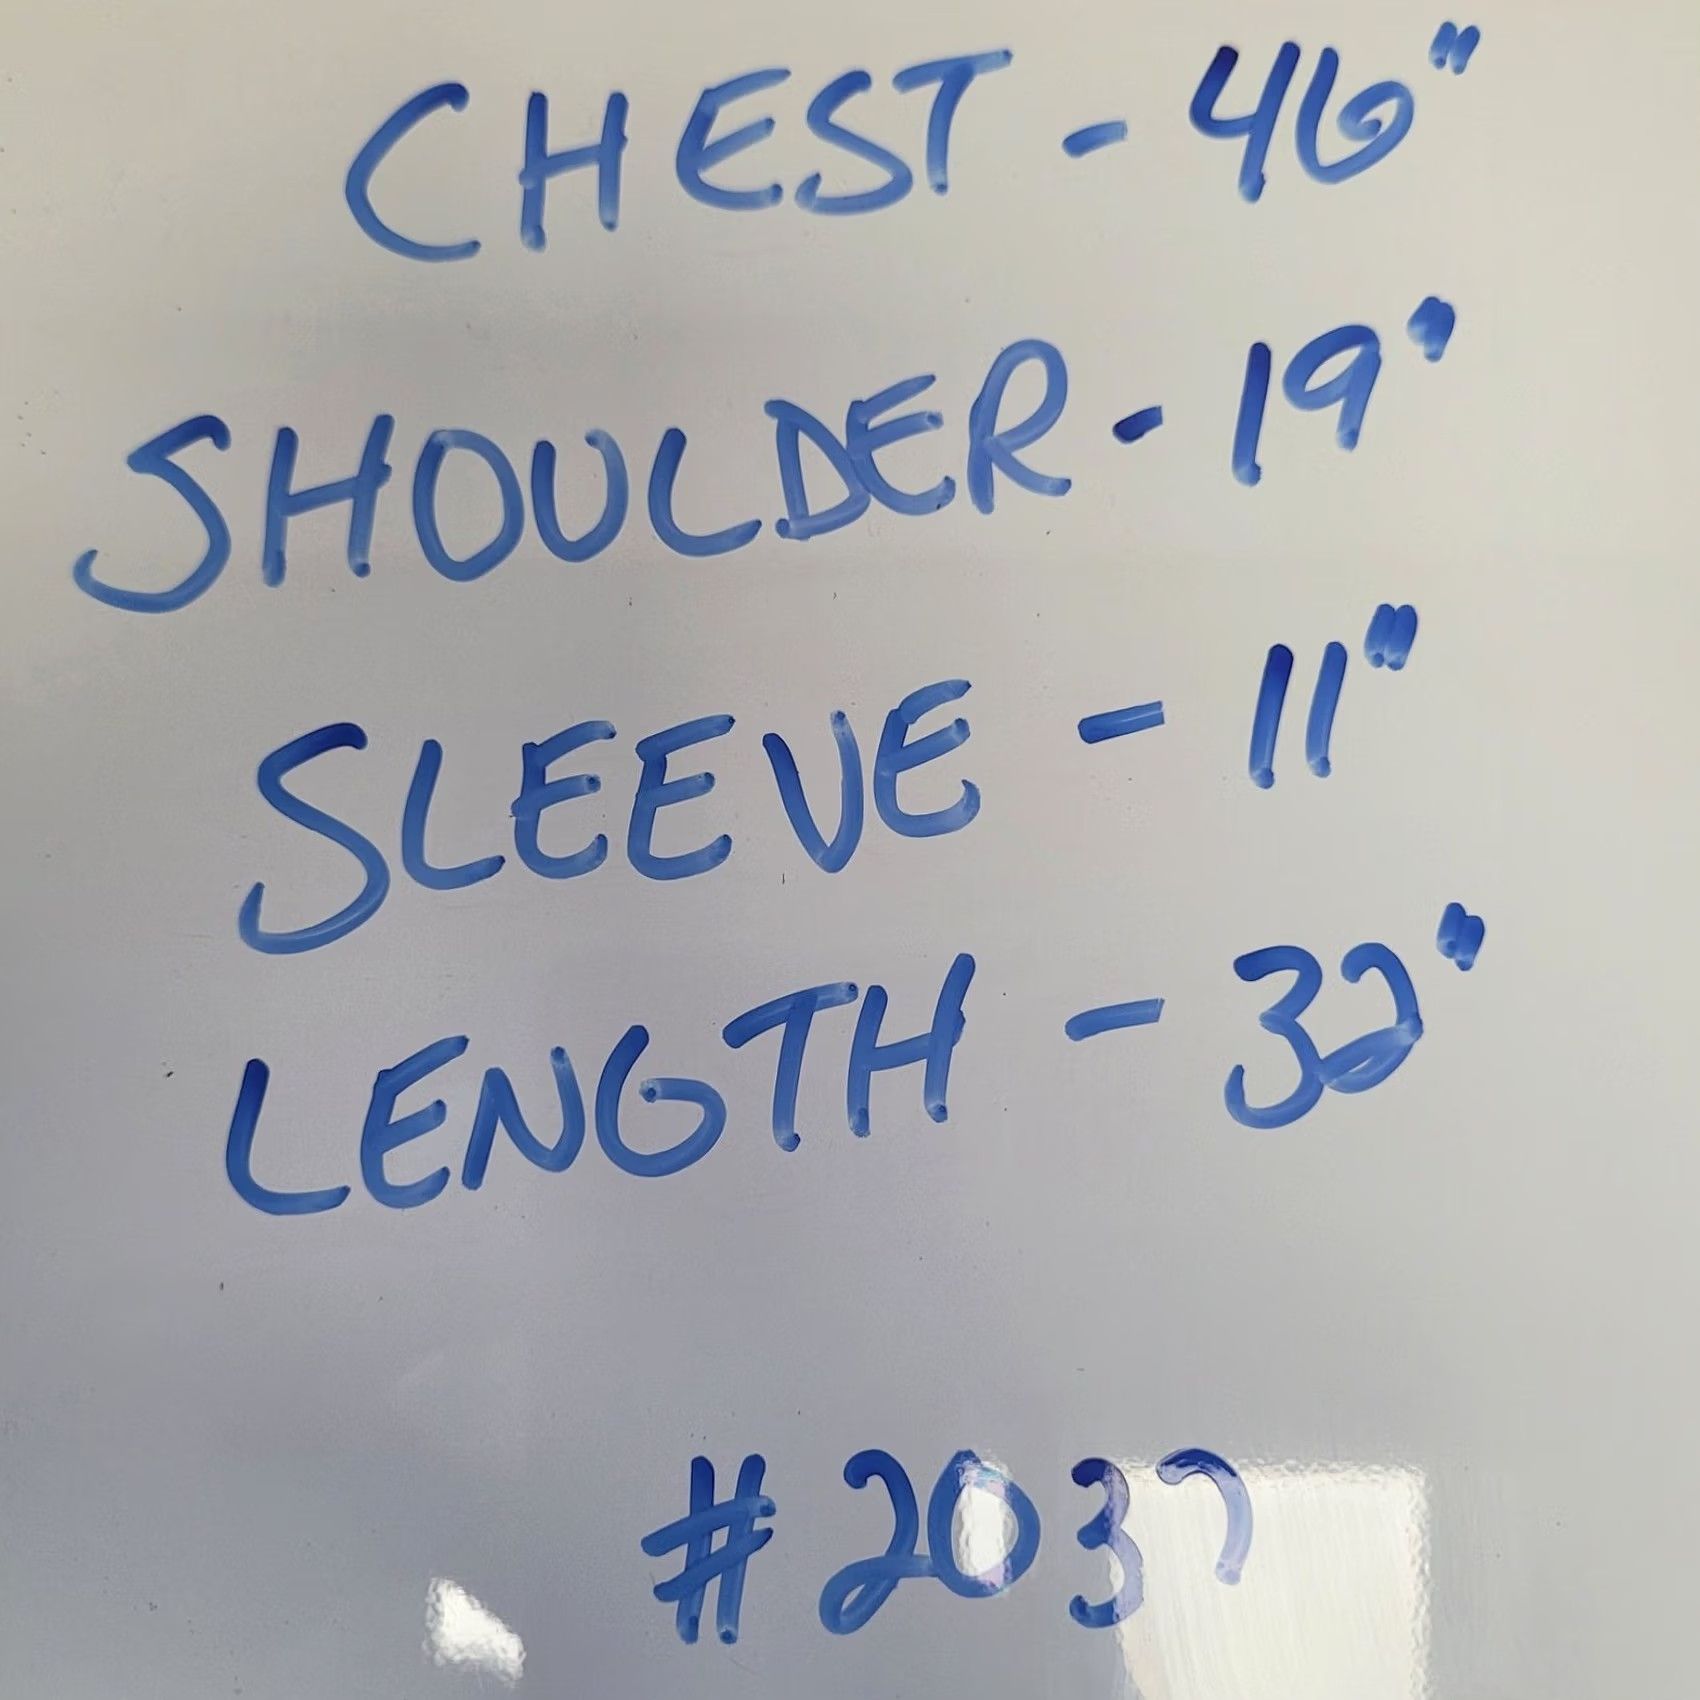 CHEST - 46"
SHOULDER - 19"
SLEEVE - 11"
LENGTH - 32"
#2037